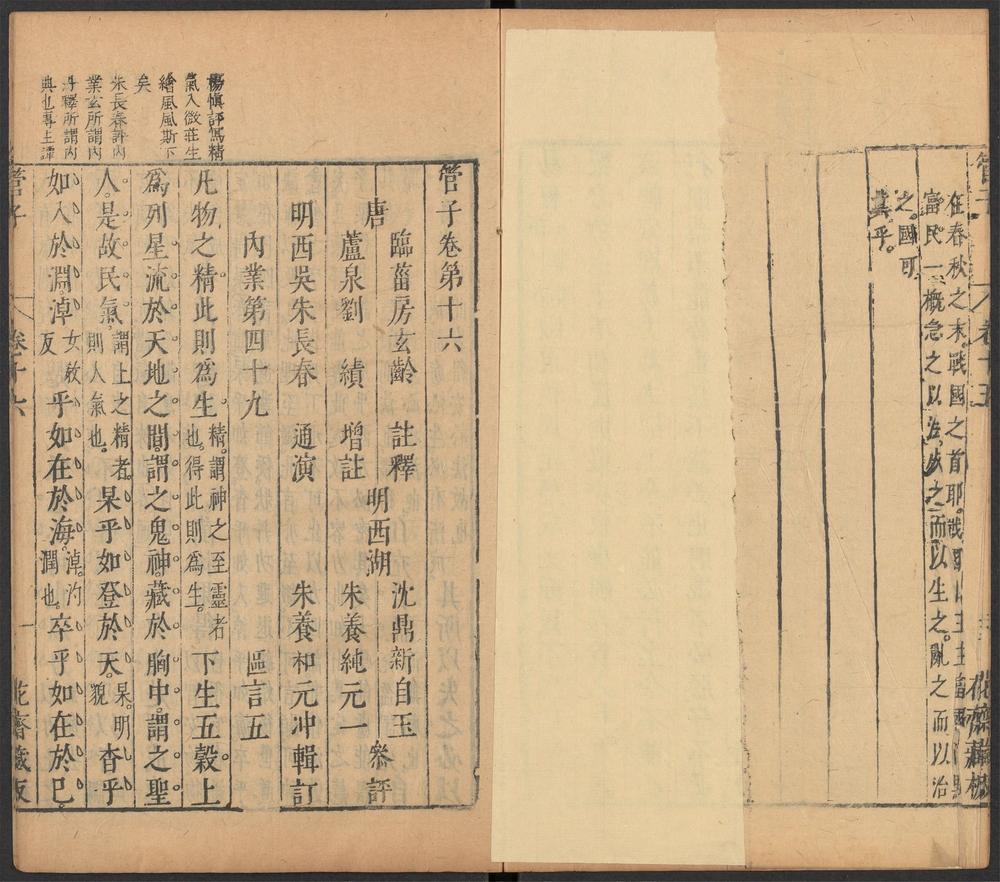 在春秋之末戰國之首耶。戰國
富民一槪急之以法。故之而以生之。亂之而以治
之。國可
冀乎。
卷十五
楊慎評寫精
氣入微莊生
繪風風斯下
矣
朱長春評內
業玄所謂內
丹釋所謂內
典也專主譚
管子卷第十六
唐 臨菑房玄齡 註釋
蘆泉劉 績 增註
明西吳朱長春 通演
明西湖
沈鼎新自玉
朱養純元一 叅評
朱養和元冲輯訂
內業第四十九 區言五
凡物之精此則爲生。精。謂神之至靈者也。得此則爲生。下生五穀。上
爲列星。流於天地之間。謂之鬼神。藏於胸中。謂之聖
人。是故民氣。謂上之精者。則人氣也。杲乎如登於天。杲。明貌 杳乎
如入於淵。淖女敎反乎如在於海。淖。汋潤也。卒乎如在於已。
管子 卷十六 一 花齋藏板